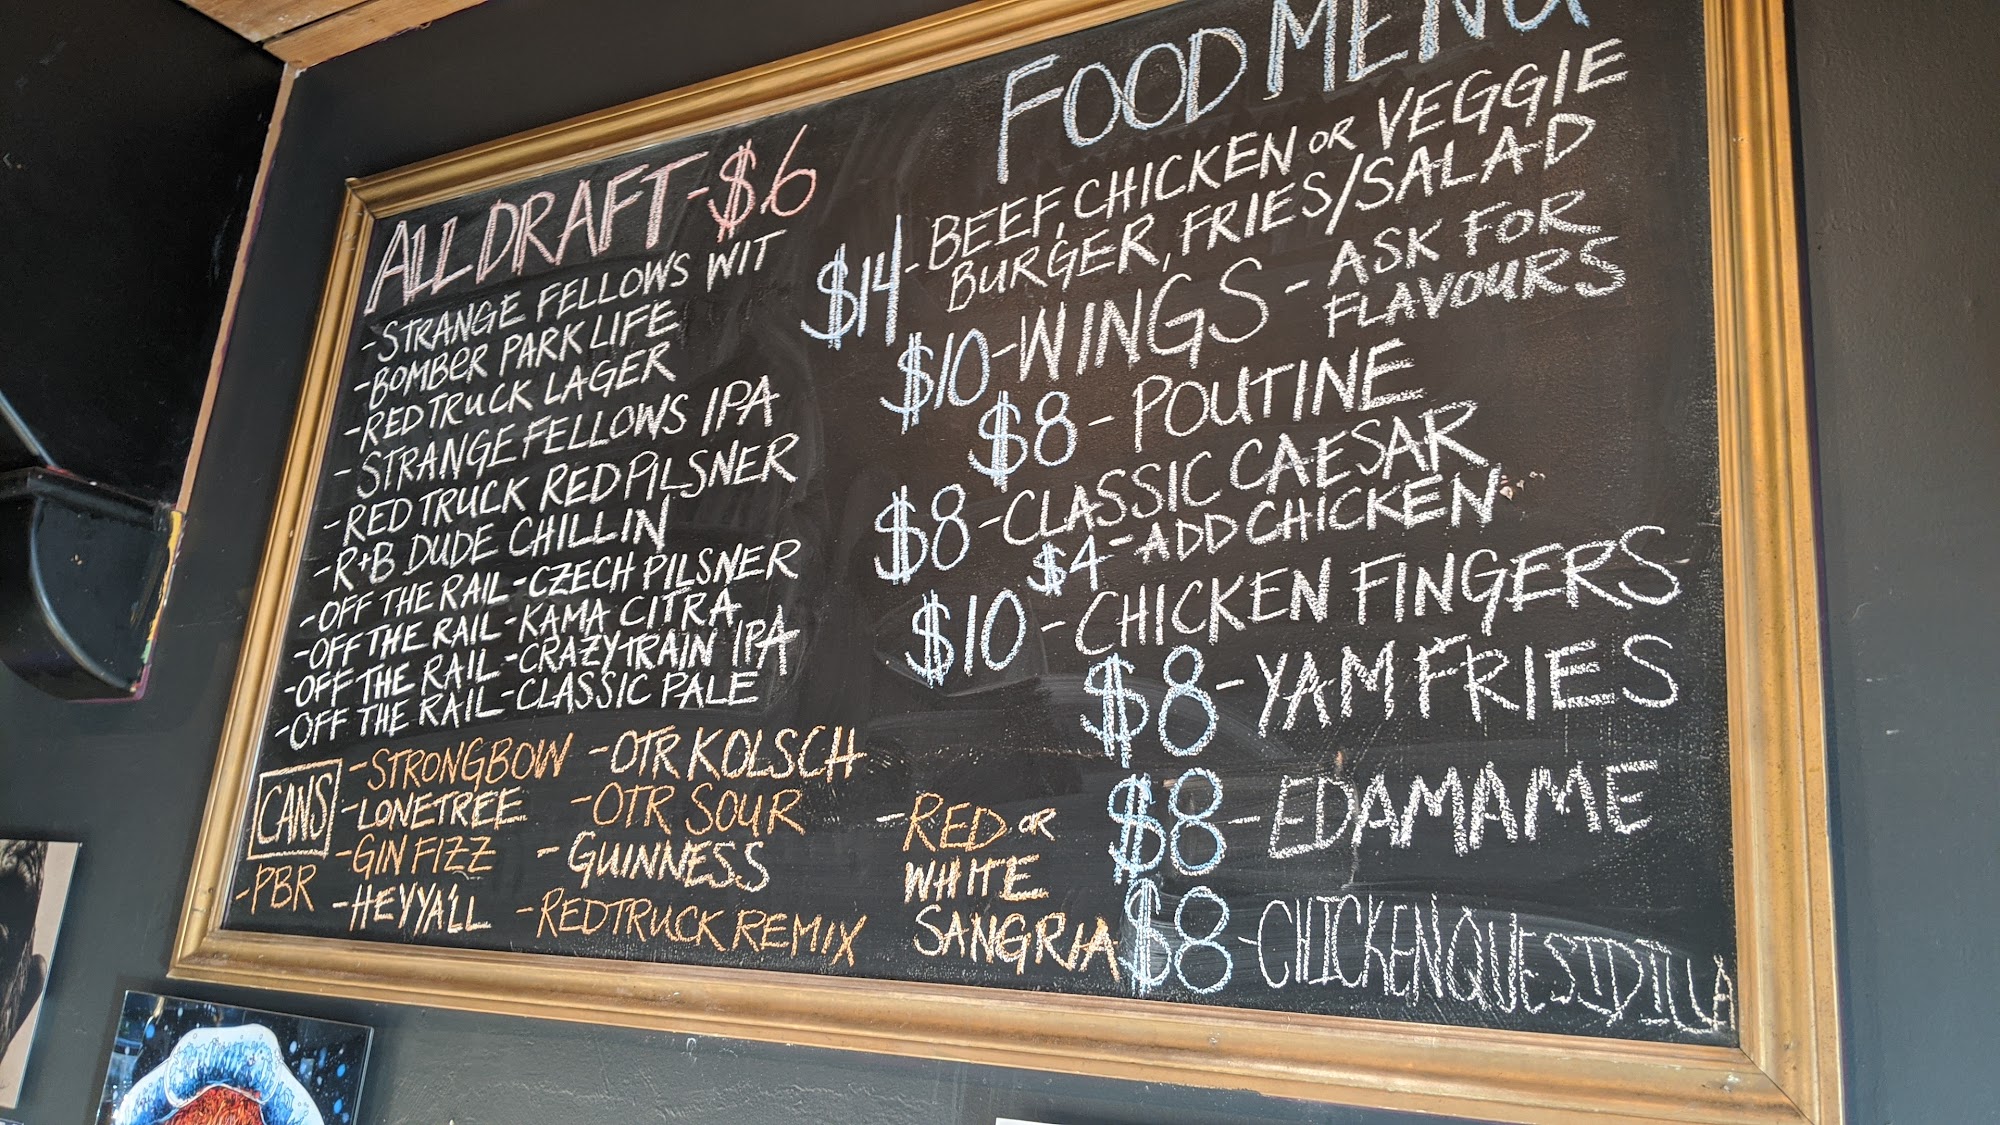 ALL DRAFT - $6
- STRANGE FELLOWS WIT
- BOMBER PARK LIFE
- RED TRUCK LAGER
- STRANGE FELLOWS IPA
- RED TRUCK RED PILSNER
- R+B DUDE CHILLIN
- OFF THE RAIL - CZECH PILSNER
- OFF THE RAIL - KAMA CITRA
- OFF THE RAIL - CRAZY TRAIN IPA
- OFF THE RAIL - CLASSIC PALE
CANS
- STRONGBOW - OTR KOLSCH
- LONETREE - OTR SOUR
- GIN FIZZ - GUINNESS
- PBR - HEY Y'ALL - RED TRUCK REMIX
- RED OR
WHITE
SANGRIA
FOOD MENU
$14 - BEEF, CHICKEN OR VEGGIE
BURGER, FRIES/SALAD
$10 - WINGS - ASK FOR
FLAVOURS
$8 - POUTINE
$8 - CLASSIC CAESAR
$4 - ADD CHICKEN
$10 - CHICKEN FINGERS
$8 - YAM FRIES
$8 - EDAMAME
$8 - CHICKEN QUESIDILLA